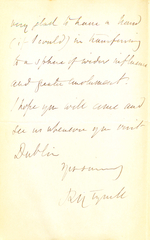 very glad to have a hand
(if I could) in transferring
to a sphere of wider influence
and greater emolument.
I hope you will come and
see us whenever you visit
Dublin
Yours
R Y Tyrrell